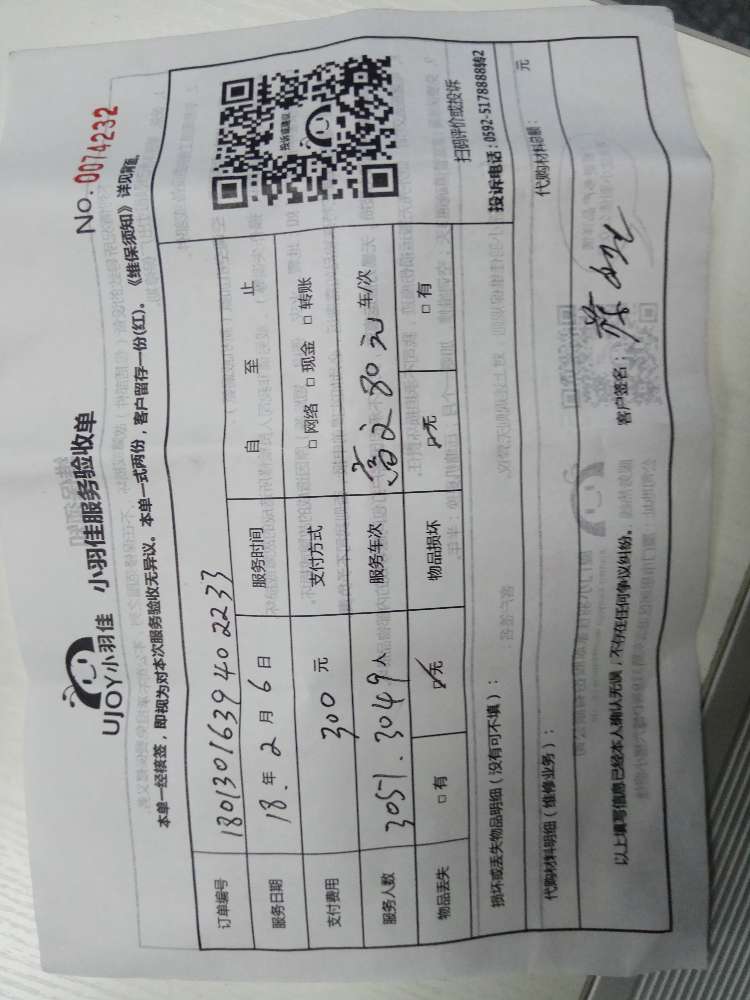 UJOY小羽佳 小羽佳服务验收单
No. 0074232
本单一经核签，即视为对本次服务验收无异议。 本单一式两份，客户留存一份(红)。 《维保须知》详见背面。
订单编号 1801301639402233
投诉或建议
服务日期 18 年 2 月 6 日 服务时间 自 至 止
支付费用 300 元 支付方式 □ 网络 □ 现金 □ 转账
服务人数 3051. 3049 人 服务车次 80元 车/次
物品丢失 □ 有 ☑ 无 物品损坏 ☑ 无 □ 有
扫码评价或投诉
损坏或丢失物品明细（没有可不填）：
投诉电话：0592-5178888转2
代购材料明细（维修业务）： 代购材料总额： 元
以上填写信息已经本人确认无误，不存在任何争议纠纷。 客户签名：